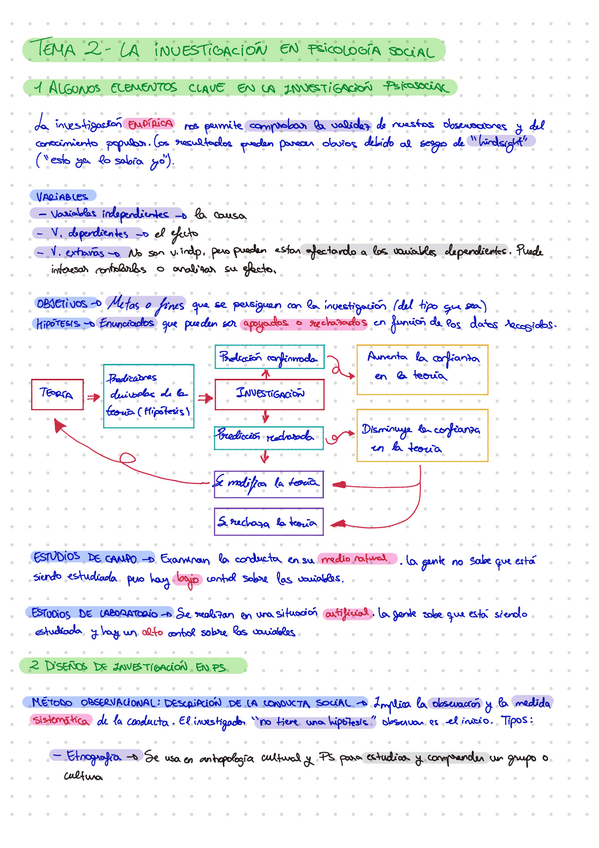 TEMA 2 - LA INVESTIGACIÓN EN PSICOLOGÍA SOCIAL
1 ALGUNOS ELEMENTOS CLAVE EN LA INVESTIGACIÓN PSICOSOCIAL
La investigación EMPÍRICA nos permite comprobar la validez de nuestras observaciones y del
conocimiento popular. Los resultados pueden parecer obvios debido al sesgo de "hindsight"
("esto ya lo sabía yo").
VARIABLES
- Variables independientes → la causa
- V. dependientes → el efecto
- V. extrañas → No son v. indp, pero pueden estar afectando a las variables dependientes. Puede
interesar controlarlas o analizar su efecto.
OBJETIVOS → Metas o fines que se persiguen con la investigación (del tipo que sea)
HIPÓTESIS → Enunciados que pueden ser apoyados o rechazados en función de los datos recogidos.
Predicción confirmada
Aumenta la confianza
en la teoría
TEORÍA
Predicciones
derivadas de la
teoría (Hipótesis)
INVESTIGACIÓN
Predicción rechazada
Disminuye la confianza
en la teoría
Se modifica la teoría
Se rechaza la teoría
ESTUDIOS DE CAMPO → Examinan la conducta en su medio natural. La gente no sabe que está
siendo estudiada pero hay bajo control sobre las variables.
ESTUDIOS DE LABORATORIO → Se realizan en una situación artificial. La gente sabe que está siendo
estudiada y hay un alto control sobre las variables
2 DISEÑOS DE INVESTIGACIÓN EN PS.
MÉTODO OBSERVACIONAL: DESCRIPCIÓN DE LA CONDUCTA SOCIAL → Implica la observación y la medida
sistemática de la conducta. El investigador "no tiene una hipótesis" observar es el inicio. Tipos:
- Etnografía → Se usa en antropología cultural y PS para estudiar y comprender un grupo o
cultura